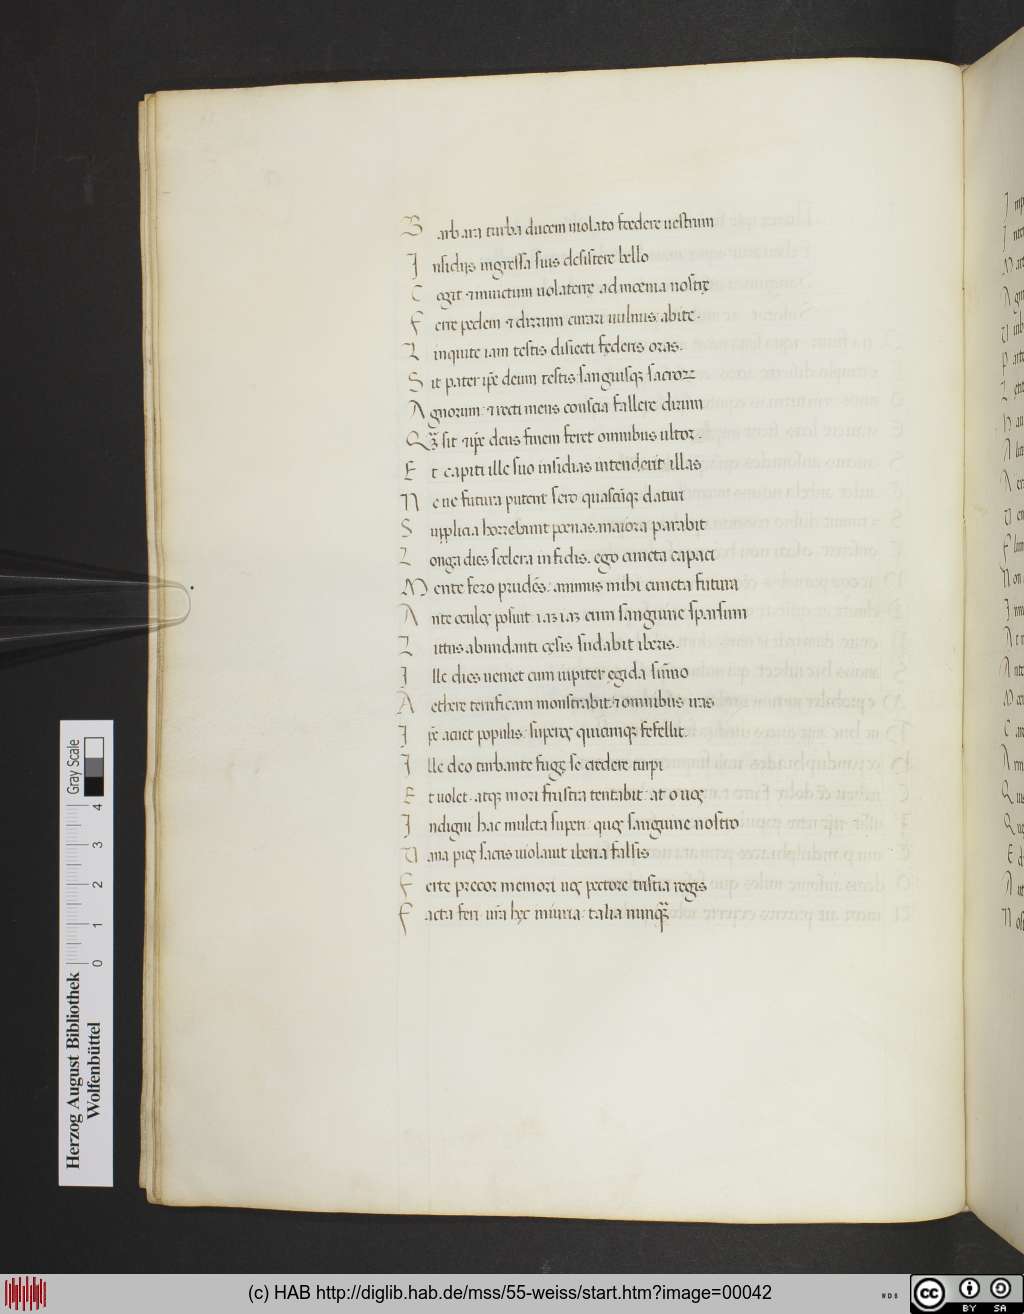 Barbara turba ducem uiolato foedere uestrum
Insidijs ingressa suis desistere bello
Cogit & inuictum uolaterrę ad moenia nostrę
Ferre pedem & dirum curari uulnus: abite.
Linquite iam testis disiecti fęderis oras.
Sit pater ip̄e deum testis sanguisq; sacror
Agnorum: & recti mens conscia fallere dirum
Q sit & ip̄e deus finem feret omnibus ultor.
Et capiti ille suo insidias intenderit illas
Ne ue futura putent sero quascūq; datur
Supplicia horrebunt poenas maiora parabit
Longa dies scelera infidis. ego cuncta capaci
Mente fero prudēs: animus mihi cuncta futura
Ante oculos posuit. iaz iaz cum sanguine sparsum
Littus abundanti cęsis sudabit iberis.
Ille dies ueniet cum iupiter ęgida sūmo
Aethere terrificam monstrabit: & omnibus iras
Ip̄e aciet populis: superos quicūnq; fefellit.
Ille deo turbante fugę se credere turpi
Et uolet. atq; mori frustra tentabit: at o uos
Indigni hac mulcta superi: quos sanguine nostro
Vana pios sacris uiolauit iberia falsis
Ferte precor memori uos pectore tristia regis
Facta feri: ur̄a hęc iniuria: talia nunq
Herzog August Bibliothek
Wolfenbüttel
0 1 2 3 4
Gray Scale
(c) HAB http://diglib.hab.de/mss/55-weiss/start.htm?image=00042
cc BY SA